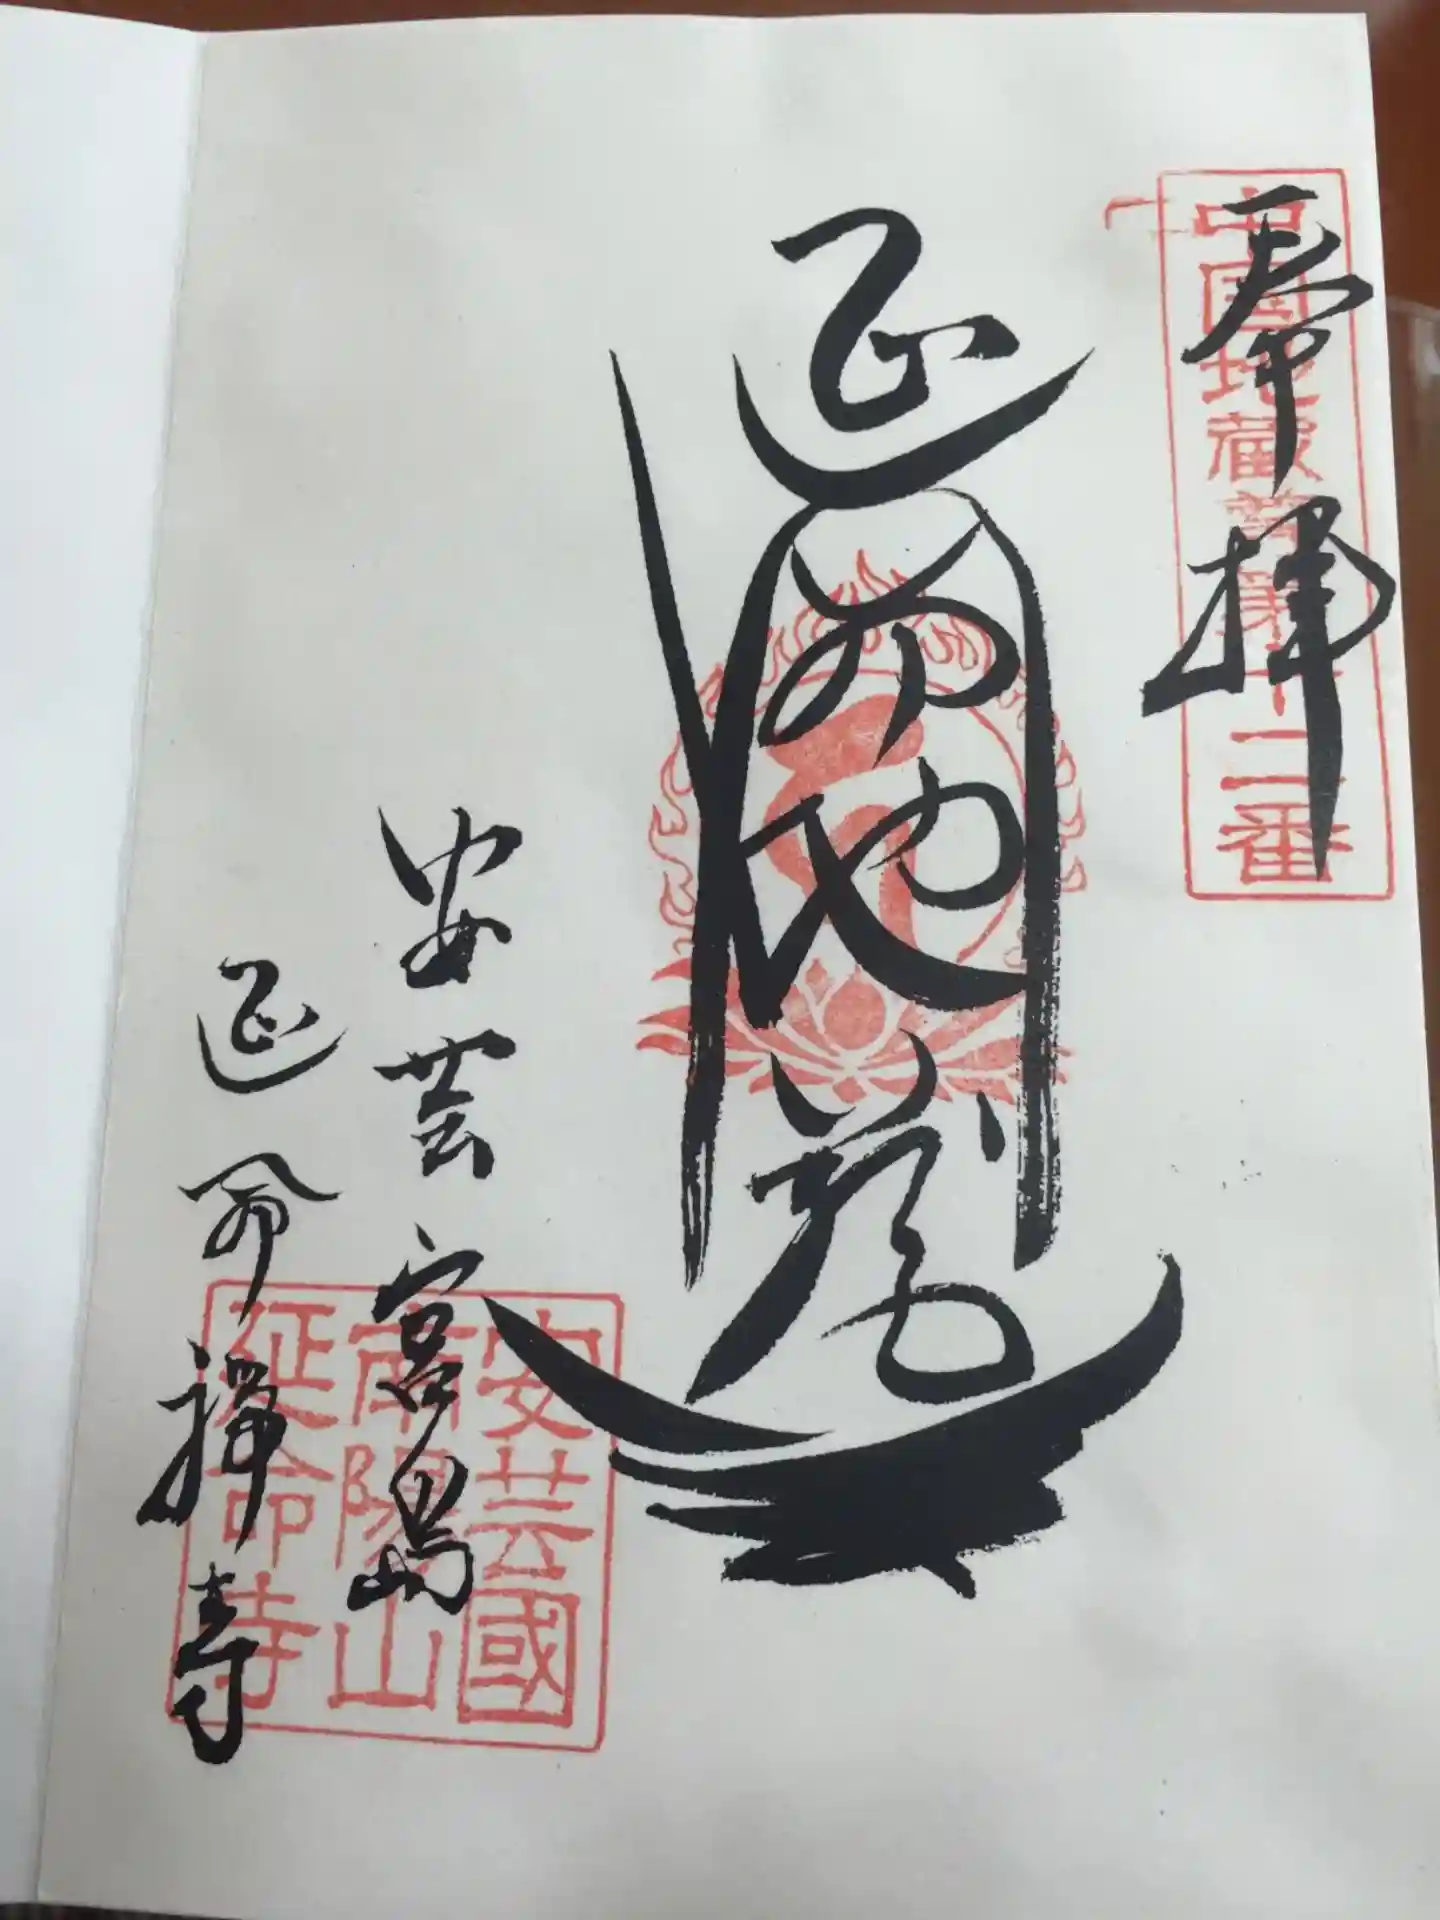 奉拝
中国地蔵尊第十二番
延命地蔵尊
安芸宮島
延命禅寺
安芸國
南陽山
延命寺